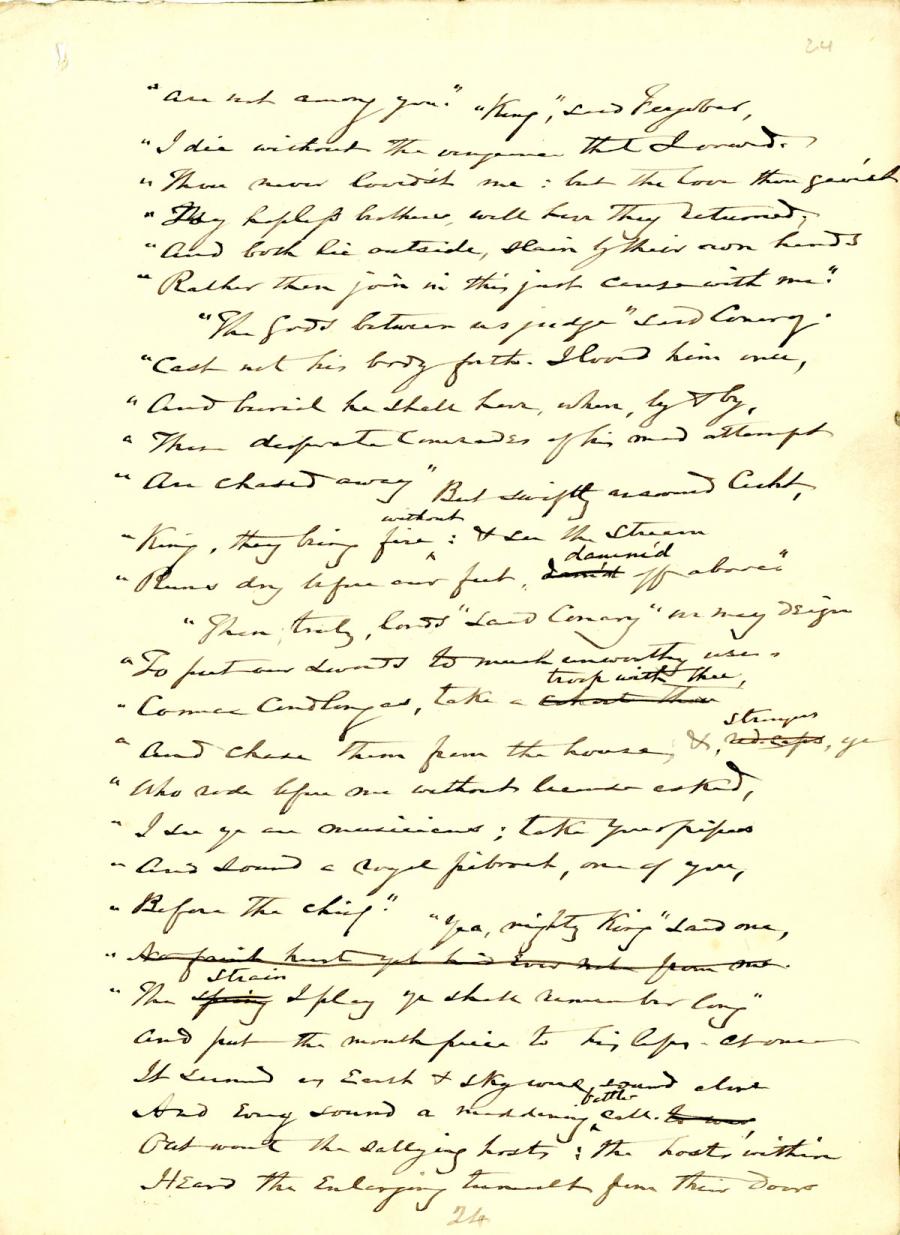 24
"Are not among you." "King," said Fergobar,
"I die without the vengeance that I vowed.
"Thou never loved'st me: but the love thou gav'st
"My hapless brothers, well have they returned;
"And both lie outside, slain by their own hands
"Rather than join in this just cause with me."
"The Gods between us judge" said Conary.
"Cast not his body forth. I loved him once,
"And burial he shall have, when, by & by,
"These desperate Comrades of his mad attempt
"Are chased away" But swiftly answered Cecht,
"King, they bring fire without: & see the stream
"Runs dry before our feet, dam'd damm'd off above."
"Then, truly, lords" said Conary "we may deign
"To put our swords to much unworthy use.
"Cormac Condlongas, take a troop with thee,
"And chase them from the house, &, red-caps strangers, ye
"Who rode before me without licence asked,
"I see ye are musicians; take your pipes
"And sound a royal pibroch, one of you,
"Before the chief." "Yea, mighty King" said one,
"No faint heart yet has ever from me.
"The spring strain I play ye shall remember long"
And put the mouth piece to his lips. At once
It seemed as Earth & sky were sound alone
And Every sound a maddening battle call to war,
Out went the sallying hosts: the hosts within
Heard the Enlarging tumult from their doors
24